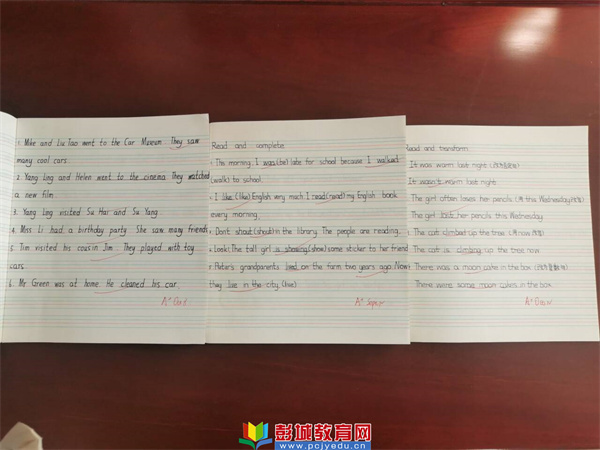 1. Mike and Liu Tao went to the Car Museum. They saw
many cool cars.
2. Yang Ling and Helen went to the cinema. They watched
a new film.
3. Yang Ling visited Su Hai and Su Yang.
4. Miss Li had a birthday party. She saw many friends.
5. Tim visited his cousin Jim. They played with toy
cars.
6. Mr Green was at home. He cleaned his car.
A+
Read and complete
This morning, I was(be) late for school because I walked
(walk) to school.
I like (like) English very much. I read(read) my English book
every morning.
Don't shout(shout) in the library. The people are reading.
Look! The tall girl is showing(show) some sticker to her friend
Peter's grandparents lived on the farm two years ago. Now
they live in the city. (live)
A+
Read and transform
It was warm last night.
It wasn't warm last night.
The girl often loses her pencils. (用 this Wednesday
The girl lost her pencils this Wednesday.
The cat climbed up the tree. (用now
The cat is climbing up the tree now.
There was a moon cake in the box.
There were some moon cakes in the box.
A+
彭城教育网
www.pcjyedu.cn